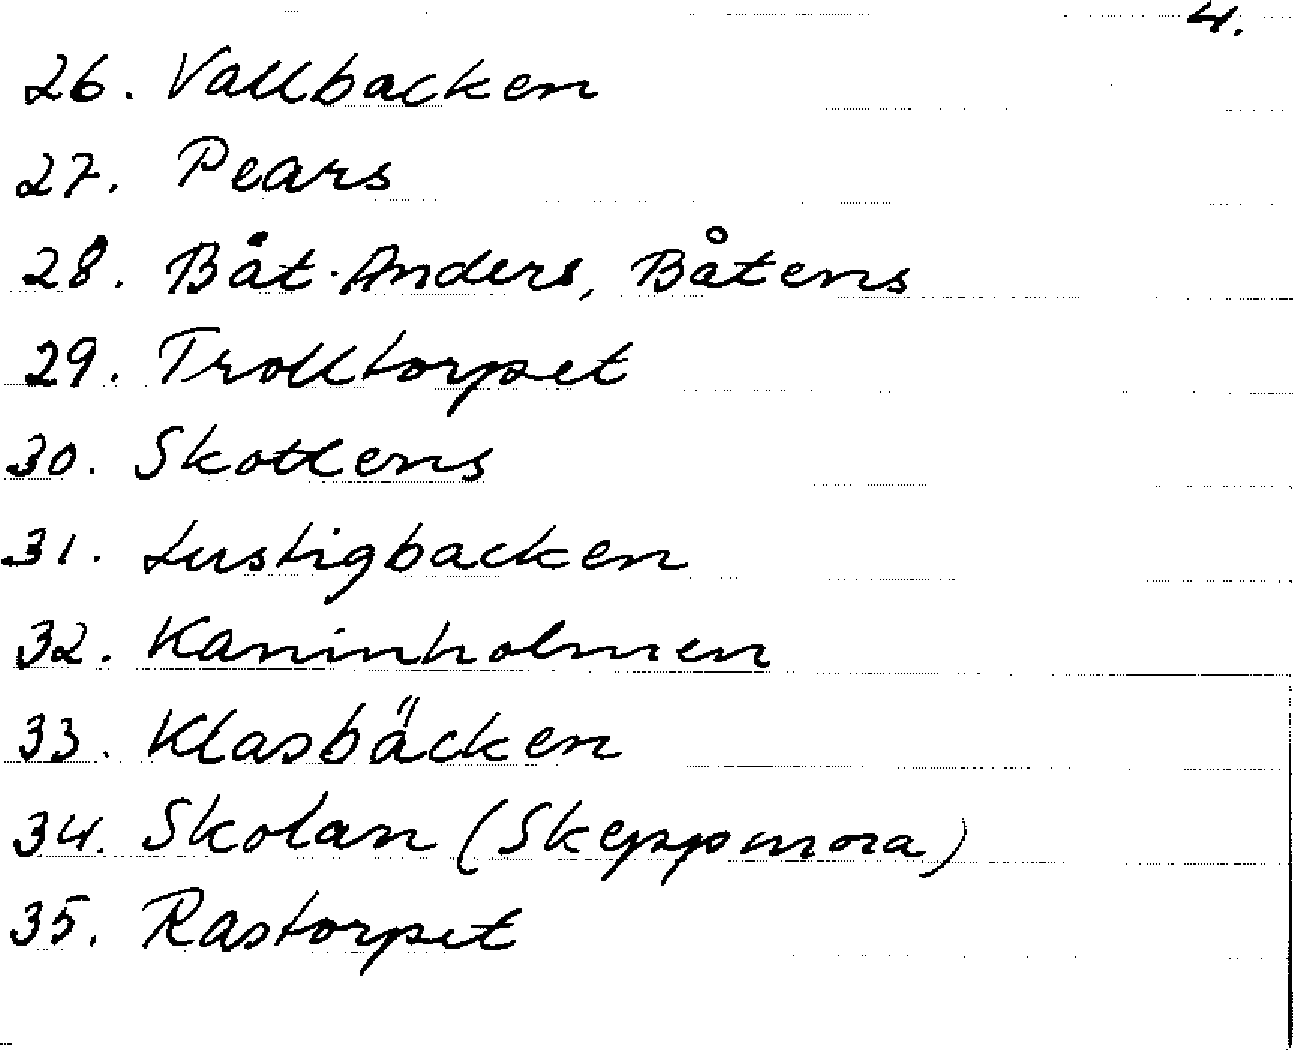 4.
26. Vallbacken
27. Pears
28. Båt-Anders, Båtens
29. Trolltorpet
30. Skottens
31. Lustigbacken
32. Kaninholmen
33. Klasbäcken
34. Skolan (Skeppmora)
35. Rastorpet